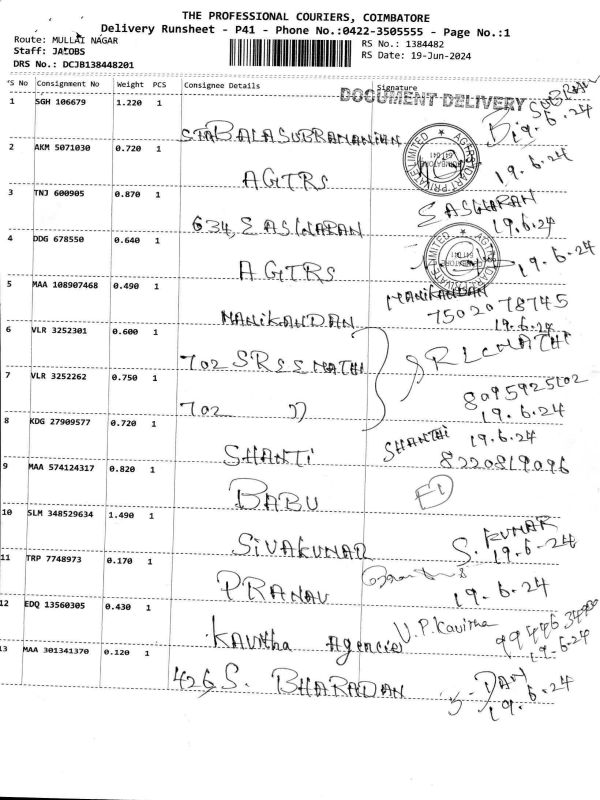 THE PROFESSIONAL COURIERS, COIMBATORE
Delivery Runsheet - P41 - Phone No.:0422-3505555 - Page No.:1
Route: MULLAI NAGAR
Staff: JACOBS
DRS No.: DCJB138448201
RS No.: 1384482
RS Date: 19-Jun-2024
S No Consignment No Weight PCS Consignee Details Signature
DOCUMENT DELIVERY
1 SGH 106679 1.220 1 BALASUBRAMANIAN SUBRAM 19.6.24
2 AKM 5071030 0.720 1 AGTRS 19.6.24
3 TNJ 600905 0.870 1 634, EASWARAN EASWARAN 19.6.24
4 DDG 678550 0.640 1 AGTRS 19.6.24
5 MAA 108907468 0.490 1 MANIKANDAN MANIKANDAN 7502078745 19.6.24
6 VLR 3252301 0.600 1 702 SREEMATHI
7 VLR 3252262 0.750 1 702 " 8095925102 19.6.24
8 KDG 27909577 0.720 1 SHANTI SHANTHI 19.6.24 8220819096
9 MAA 574124317 0.820 1 BABU
10 SLM 348529634 1.490 1 SIVAKUMAR S. KUMAR 19.6.24
11 TRP 7748973 0.170 1 PRANAV 19.6.24
12 EDQ 13560305 0.430 1 Kavitha Agencies V.P.Kavitha 19.6.24
13 MAA 301341370 0.120 1 426, S. BHARADAN 19.6.24